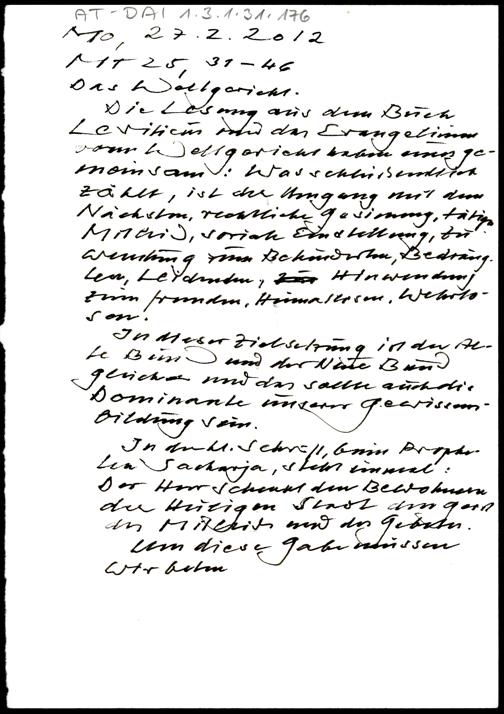 AT-DAI 1.3.1.31.176
Mo, 27.2.2012
Mt 25, 31-46
Das Weltgericht.
Die Lesung aus dem Buch
Levitikus und das Evangelium
vom Weltgericht haben eines ge-
meinsam: Was schließendlich
zählt, ist der Umgang mit dem
Nächsten, rechtliche Gesinnung, tätiges
Mitleid, soziale Einstellung, Zu
wendung zum Behinderten, Bedräng-
ten, Leidenden, Hinwendung
zum fremden, Heimatlosen, Wehrlo-
sen.
In dieser Zielsetzung ist der Al-
te Bund und der Neue Bund
gleich und das sollte auch die
Dominante unserer Gewissens-
bildung sein.
In der hl. Schrift, beim Prophe-
ten Sacharja, steht einmal:
Der Herr schenkt den Bewohnern
der Heiligen Stadt den Geist
des Mitleids und des Gebetes.
Um diese Gabe müssen
wir beten